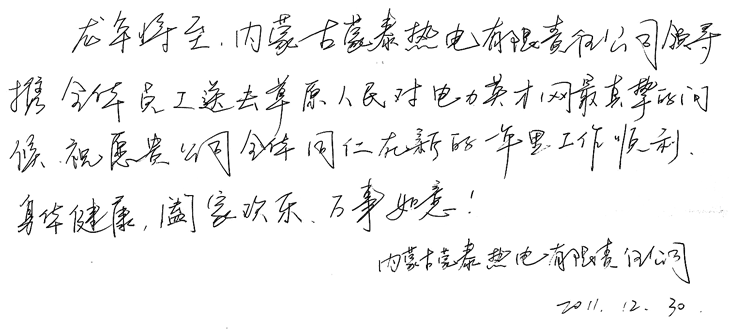 龙年将至，内蒙古蒙泰热电有限责任公司领导
携全体员工送去草原人民对电力英才网最真挚的问
候，祝愿贵公司全体同仁在新的一年里工作顺利、
身体健康，阖家欢乐、万事如意！
内蒙古蒙泰热电有限责任公司
2011.12.30.